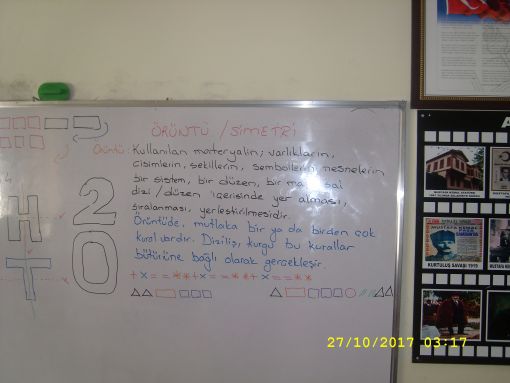 ÖRÜNTÜ / SİMETRİ
Örüntü: Kullanılan materyalin; varlıkların,
cisimlerin, şekillerin, sembollerin, nesnelerin
bir sistem, bir düzen, bir mantıksal
dizi / düzen içerisinde yer alması,
sıralanması, yerleştirilmesidir.
Örüntüde, mutlaka bir ya da birden çok
kural vardır. Diziliş, kurgu bu kurallar
bütününe bağlı olarak gerçekleşir.
+ x = = * * + x = = * * + x = = * *
H
T
2
0
KURTULUŞ SAVAŞI 1919
27/10/2017 03:17